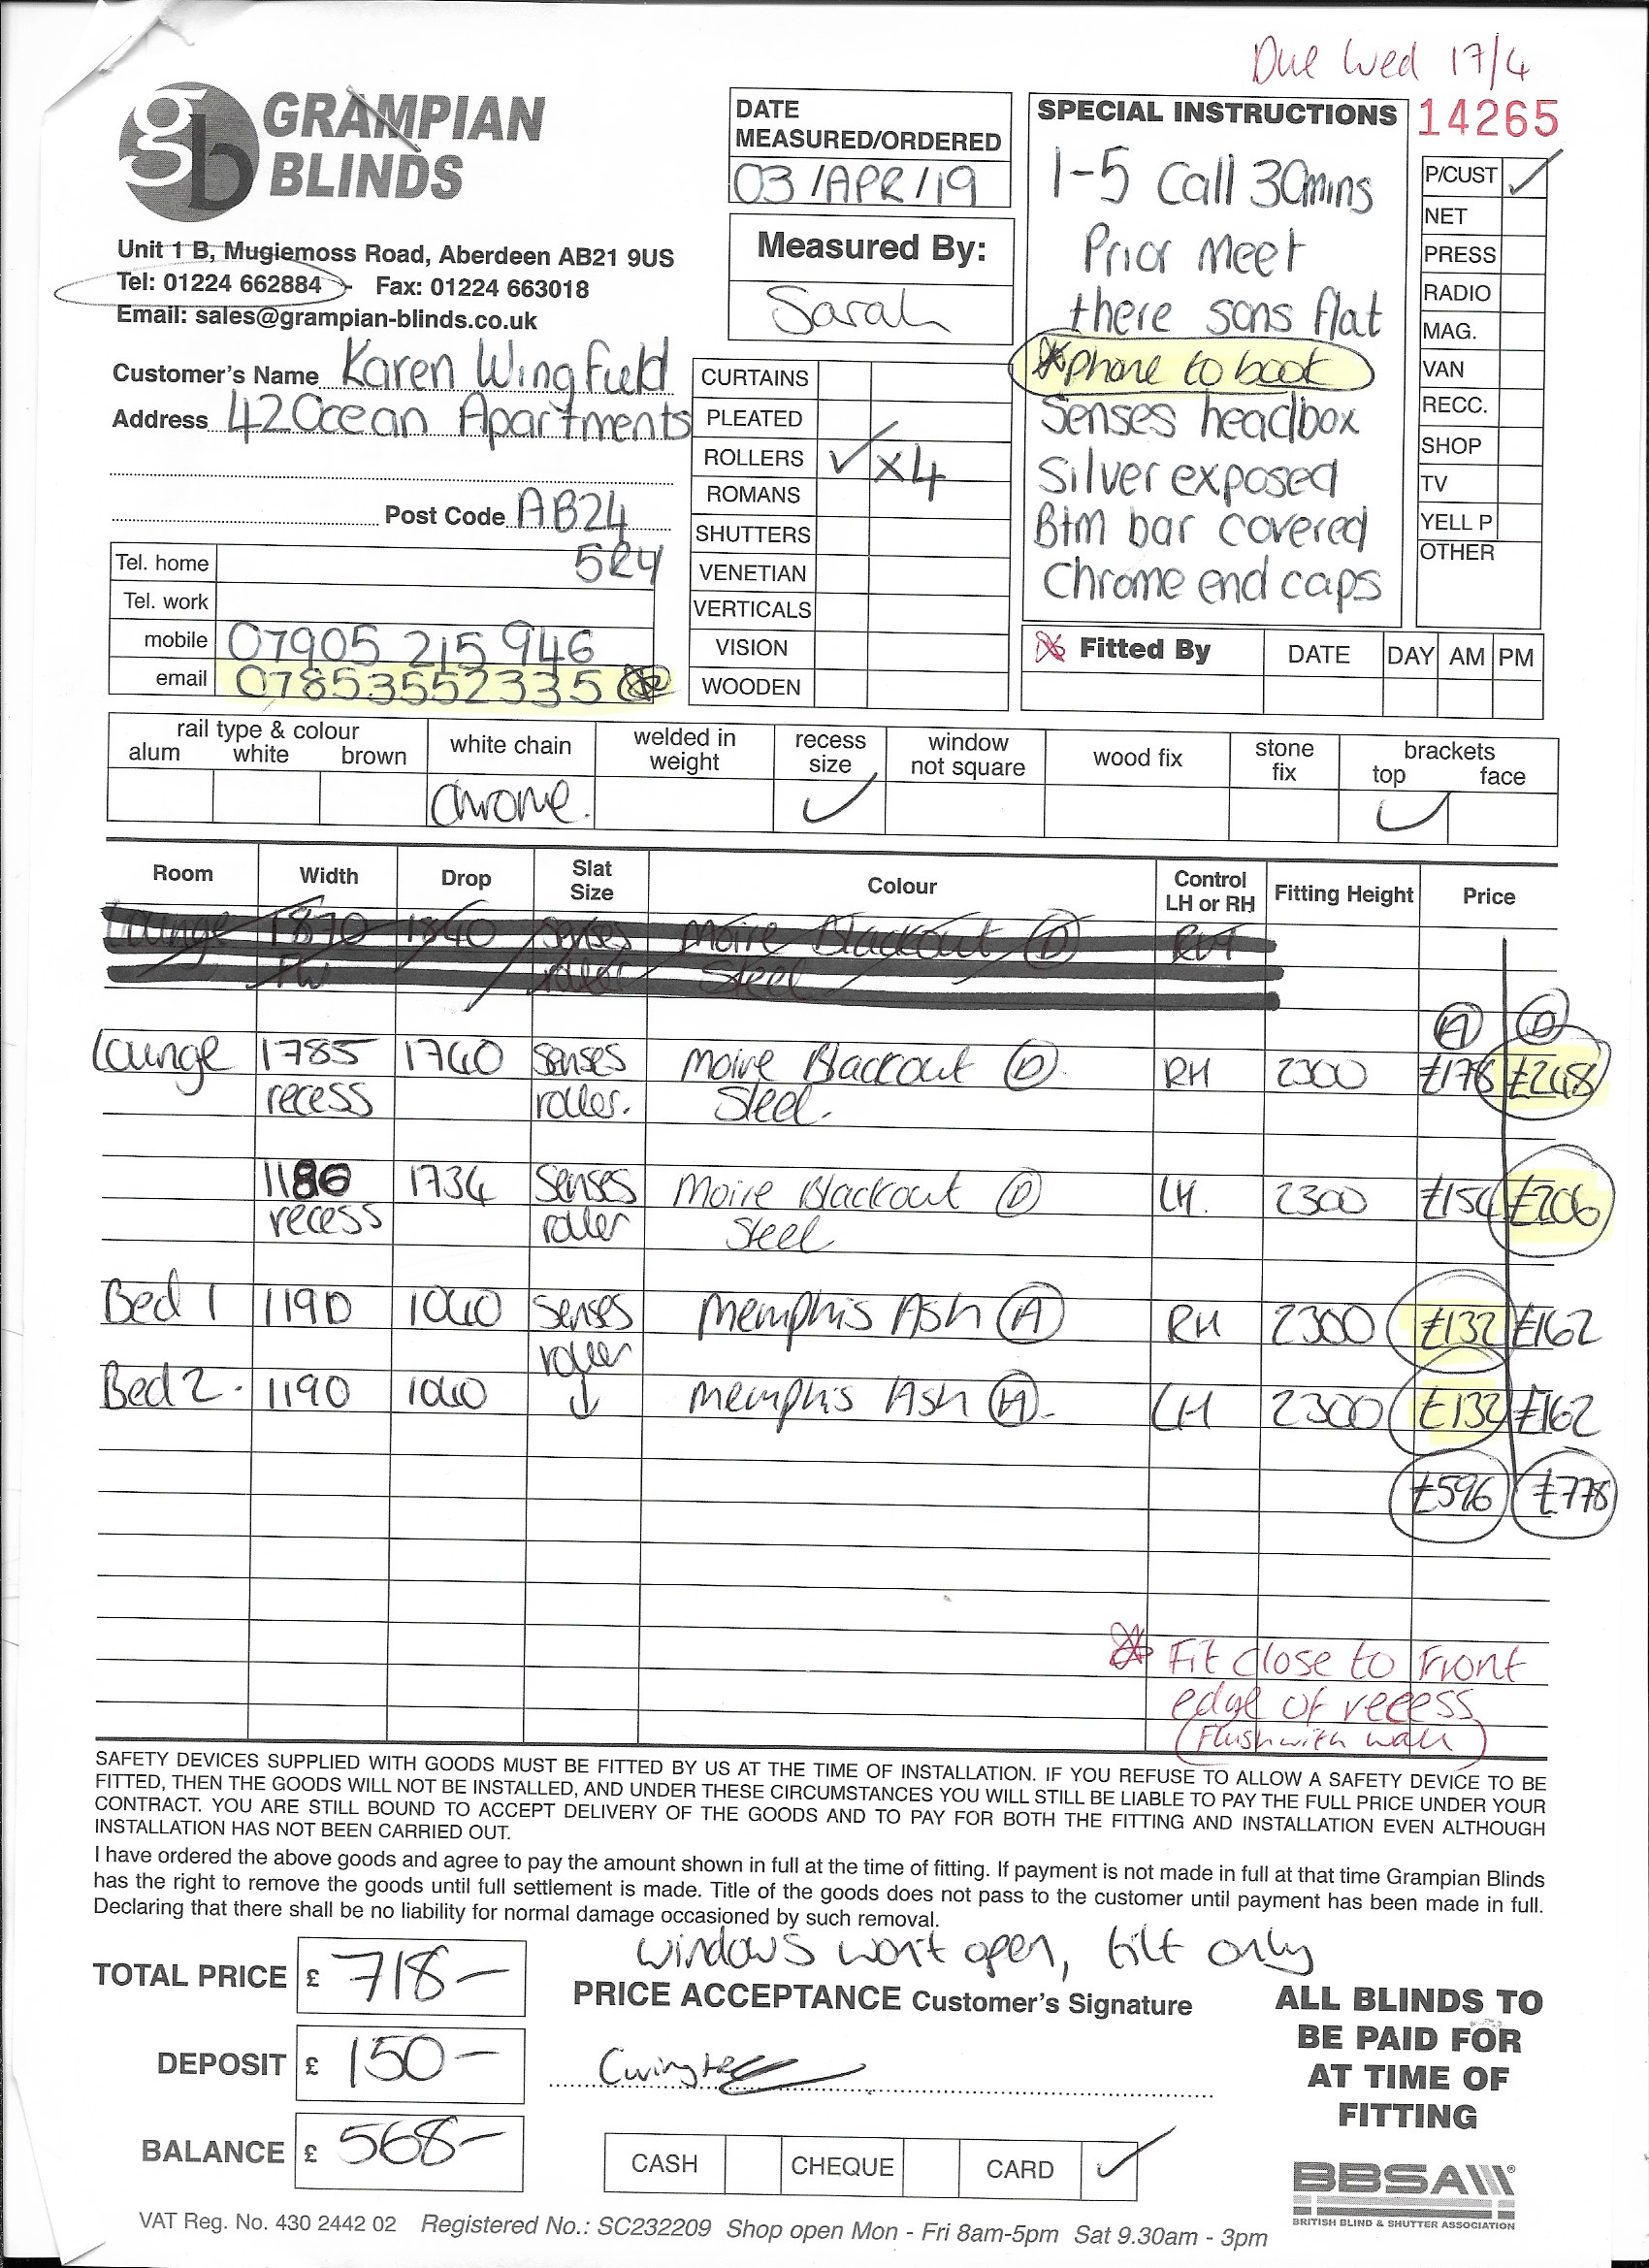 Due Wed 17/4
GRAMPIAN
BLINDS
Unit 1 B, Mugiemoss Road, Aberdeen AB21 9US
Tel: 01224 662884 - Fax: 01224 663018
Email: sales@grampian-blinds.co.uk
DATE
MEASURED/ORDERED
03/APR/19
Measured By:
Sarah
SPECIAL INSTRUCTIONS
1-5 Call 30mins
Prior Meet
there sons flat
*phone to book
Senses headbox
Silver exposed
Btm bar covered
Chrome end caps
14265
P/CUST ✓
NET
PRESS
RADIO
MAG.
VAN
RECC.
SHOP
TV
YELL P
OTHER
Customer's Name Karen Wingfield
Address 42 Ocean Apartments
Post Code AB24
5RY
Tel. home
Tel. work
mobile 07905 215 946
email 07853552335
CURTAINS
PLEATED
ROLLERS ✓ x4
ROMANS
SHUTTERS
VENETIAN
VERTICALS
VISION
WOODEN
* Fitted By DATE DAY AM PM
rail type & colour
alum white brown
white chain
Chrome.
welded in
weight
recess
size
✓
window
not square
wood fix
stone
fix
brackets
top face
✓
Room Width Drop Slat Size Colour Control LH or RH Fitting Height Price
Lounge 1870 1840 Senses Moire Blackout (D) RH
roller Steel
(A) (D)
Lounge 1785 1740 Senses Moire Blackout (D) RH 2300 £178 £248
recess roller. Steel.
1180 1734 Senses Moire Blackout (D) LH. 2300 £154 £206
recess roller Steel
Bed 1 1190 1040 Senses Memphis Ash (A) RH 2300 £132 £162
roller
Bed 2. 1190 1040 ↓ Memphis Ash (A). LH 2300 £132 £162
£596 £778
* Fit close to front
edge of recess
(Flush with wall)
SAFETY DEVICES SUPPLIED WITH GOODS MUST BE FITTED BY US AT THE TIME OF INSTALLATION. IF YOU REFUSE TO ALLOW A SAFETY DEVICE TO BE
FITTED, THEN THE GOODS WILL NOT BE INSTALLED, AND UNDER THESE CIRCUMSTANCES YOU WILL STILL BE LIABLE TO PAY THE FULL PRICE UNDER YOUR
CONTRACT. YOU ARE STILL BOUND TO ACCEPT DELIVERY OF THE GOODS AND TO PAY FOR BOTH THE FITTING AND INSTALLATION EVEN ALTHOUGH
INSTALLATION HAS NOT BEEN CARRIED OUT.
I have ordered the above goods and agree to pay the amount shown in full at the time of fitting. If payment is not made in full at that time Grampian Blinds
has the right to remove the goods until full settlement is made. Title of the goods does not pass to the customer until payment has been made in full.
Declaring that there shall be no liability for normal damage occasioned by such removal.
windows won't open, tilt only
TOTAL PRICE £ 718-
DEPOSIT £ 150-
BALANCE £ 568-
PRICE ACCEPTANCE Customer's Signature
CASH CHEQUE CARD ✓
ALL BLINDS TO
BE PAID FOR
AT TIME OF
FITTING
BBSA
BRITISH BLIND & SHUTTER ASSOCIATION
VAT Reg. No. 430 2442 02 Registered No.: SC232209 Shop open Mon - Fri 8am-5pm Sat 9.30am - 3pm